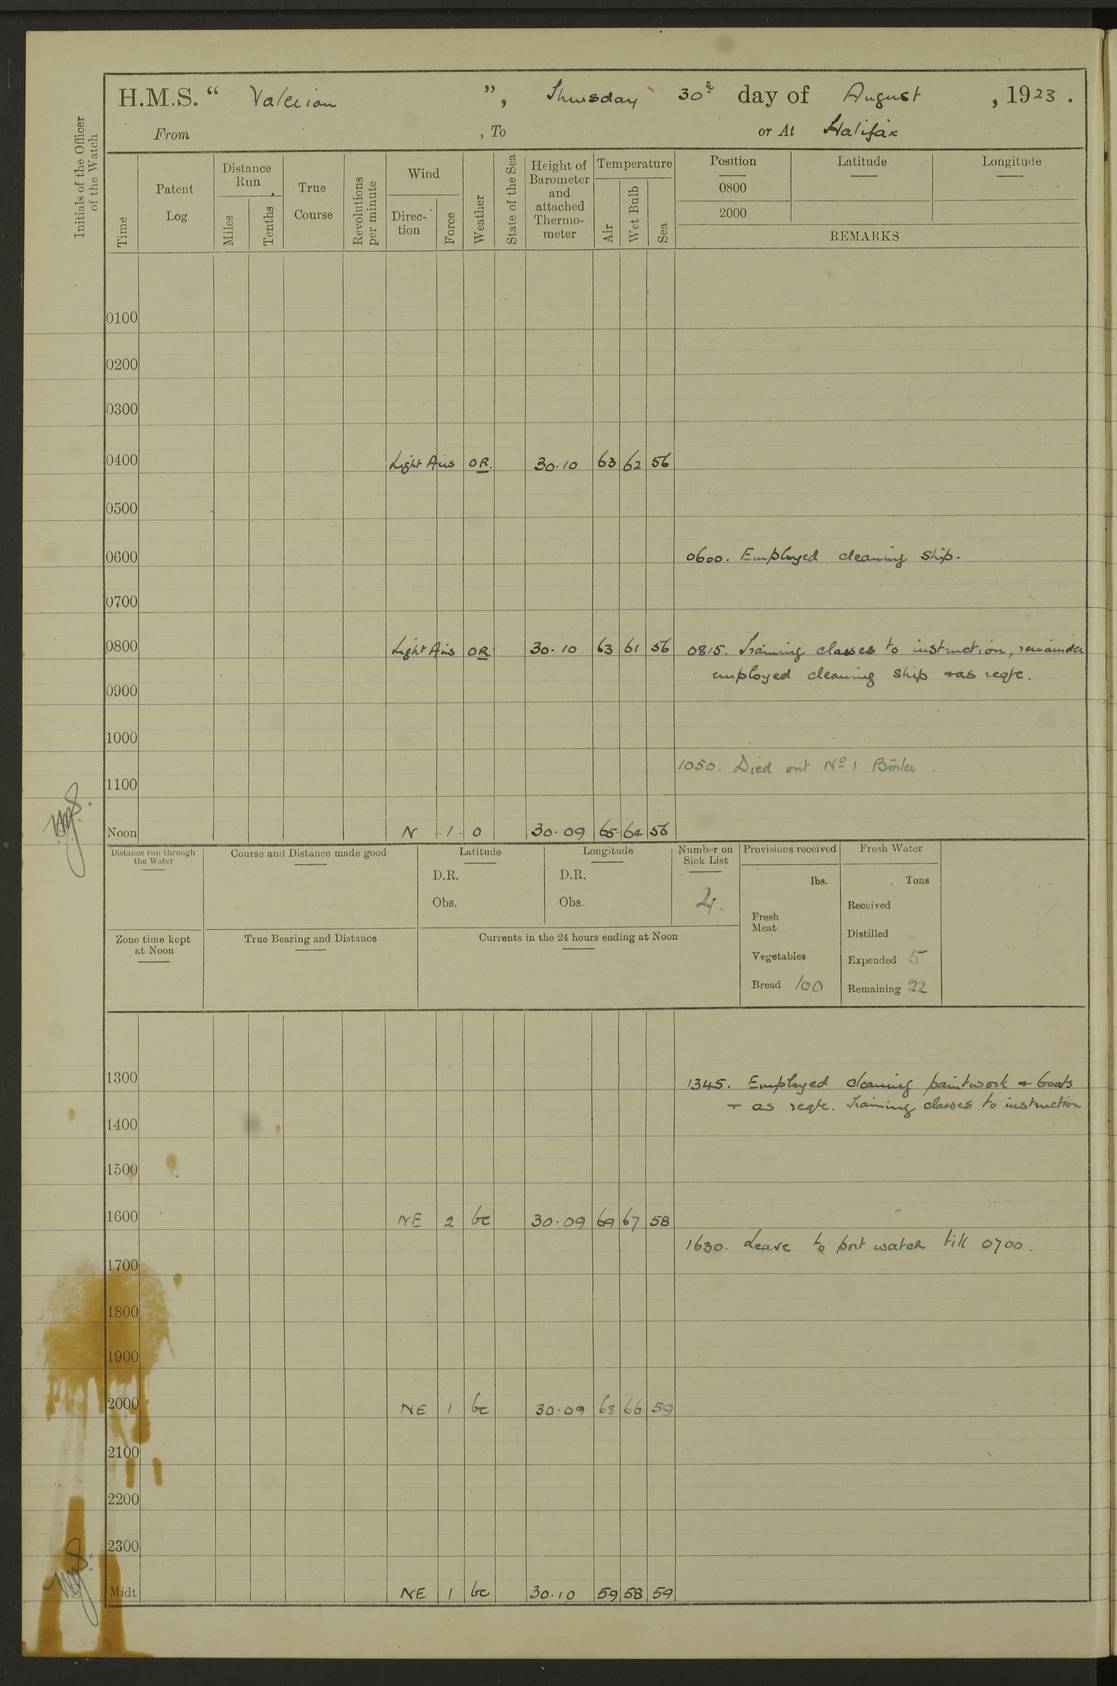 H.M.S. “ Valerian ”, Thursday 30th day of August , 1923 .
From , To or At Halifax
Initials of the Officer of the Watch
Time
Patent Log
Distance Run
Miles
Tenths
True Course
Revolutions per minute
Wind
Direc-tion
Force
Weather
State of the Sea
Height of Barometer and attached Thermo-meter
Temperature
Air
Wet Bulb
Sea
Position Latitude Longitude
0800
2000
REMARKS
0100
0200
0300
0400 Light Airs OR 30.10 63 62 56
0500
0600 0600. Employed cleaning ship.
0700
0800 Light Airs OR 30.10 63 61 56 0815. Training classes to instruction, remainder
employed cleaning ship + as reqte.
0900
1000
1050. Died out No 1 Boiler.
1100
Noon N 1 O 30.09 65 64 56
Distance run through the Water
Course and Distance made good
Latitude
D.R.
Obs.
Longitude
D.R.
Obs.
Number on Sick List
Provisions received
lbs.
Fresh Meat
Vegetables
Bread 100
Fresh Water
Tons
Received
Distilled
Expended 5
Remaining 22
Zone time kept at Noon
True Bearing and Distance
Currents in the 24 hours ending at Noon
1300 1345. Employed cleaning paintwork + boats
+ as reqte. Training classes to instruction
1400
1500
1600 NE 2 bc 30.09 69 67 58
1630. Leave to port watch till 0700.
1700
1800
1900
2000 NE 1 bc 30.09 68 66 59
2100
2200
2300
Midt NE 1 bc 30.10 59 58 59